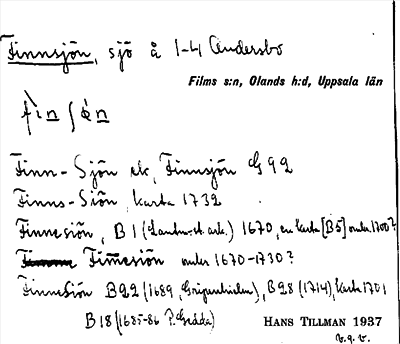 Finnsjön, sjö å 1-4 Andersbo
Films s:n, Olands h:d, Uppsala län
Finn-Sjön ek, Finnsjön G 92
Finns-Siön, karta 1732
Finnesiön, B1 (Landm.st. ark.) 1670, en karta [B5] under 1700?
Finnesiön under 1670-1730?
Finnesiön B22 (1689, Gripenhielm), B28 (1714), karta 1701
B18 (1685-86 P. Gedda)
HANS TILLMAN 1937